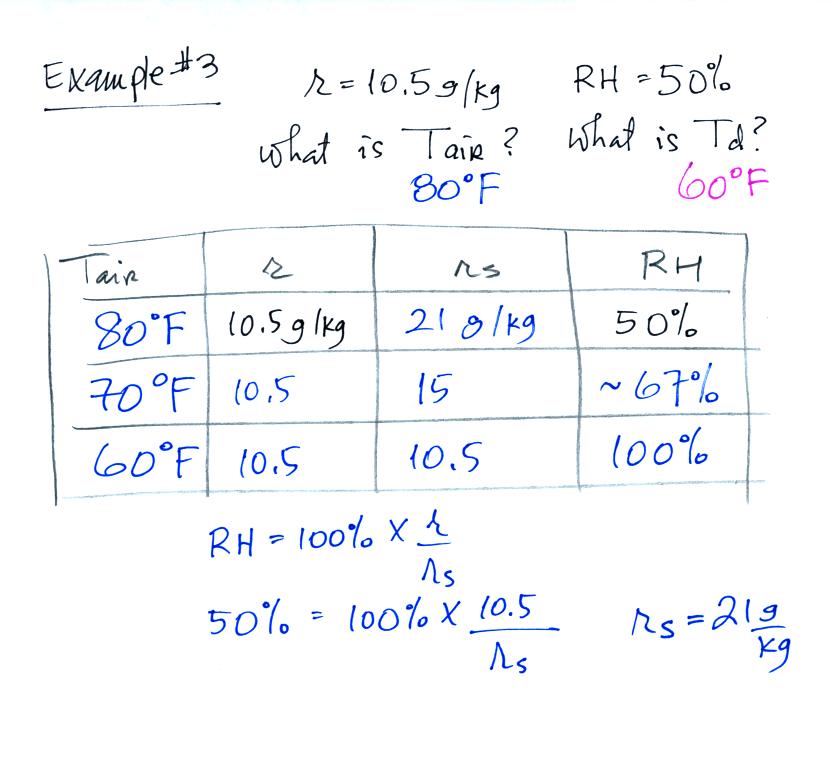 Example #3 r = 10.5 g/kg RH = 50%
what is Tair? what is Td?
80°F 60°F
Tair r rs RH
80°F 10.5 g/kg 21 g/kg 50%
70°F 10.5 15 ~67%
60°F 10.5 10.5 100%
RH = 100% x r/rs
50% = 100% x 10.5/rs rs = 21 g/kg